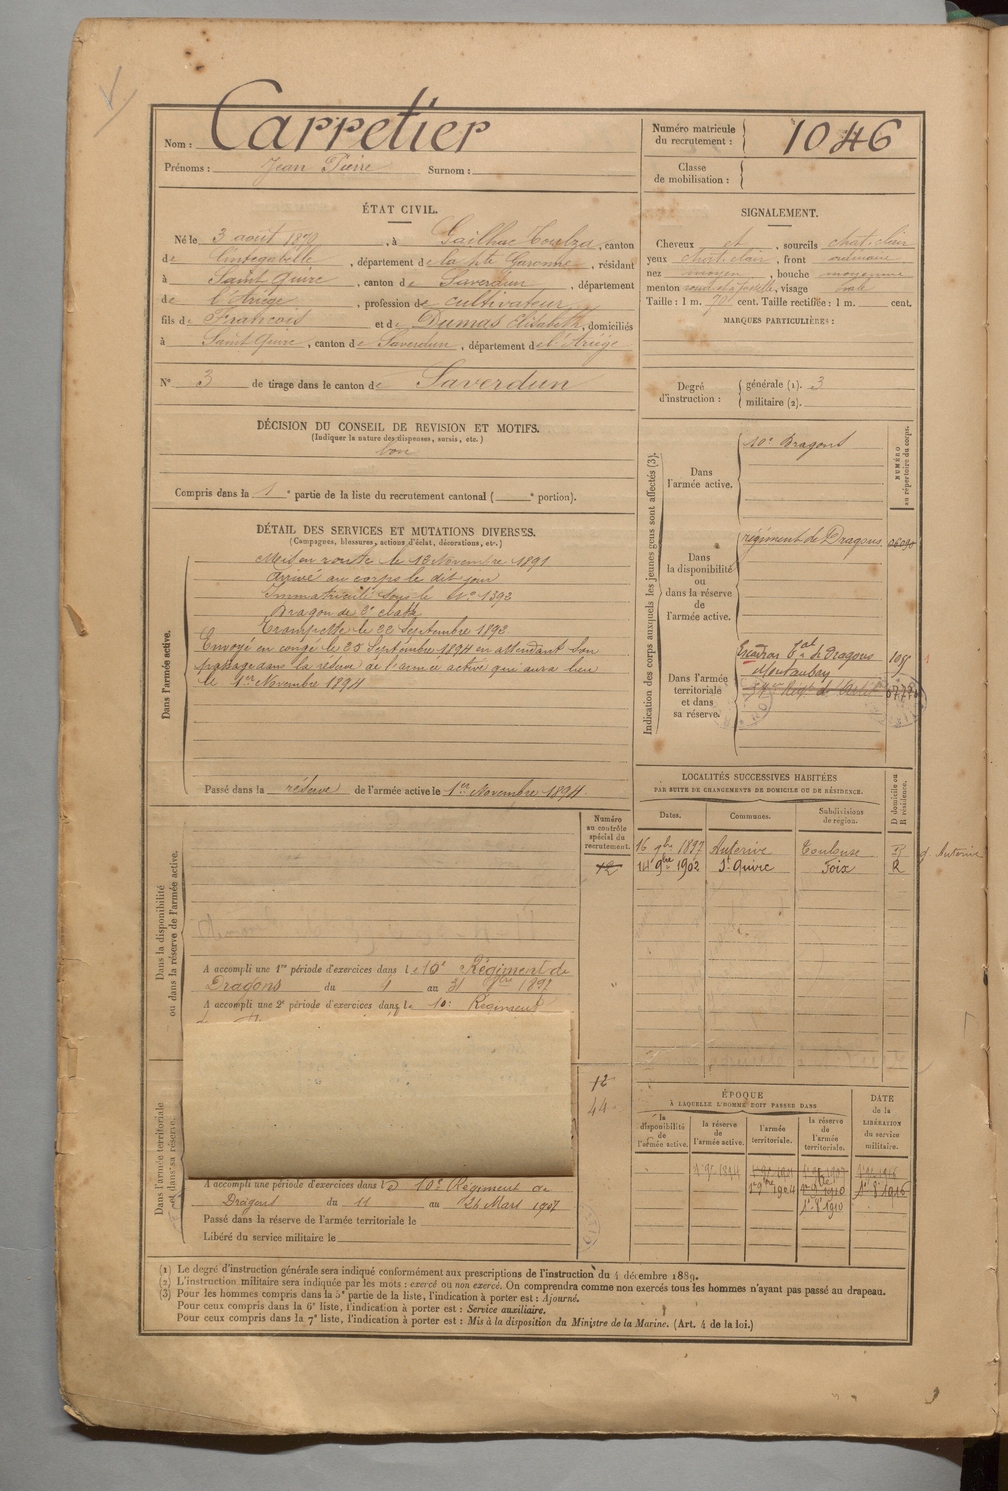 Nom : Carretier
Prénoms : Jean Pierre Surnom :
Numéro matricule
du recrutement : 1046
Classe
de mobilisation :
ÉTAT CIVIL.
Né le 3 août , à Gailhac Toulza, canton
de Cintegabelle, département de la Hte Garonne, résidant
à Saint Quirc, canton de Saverdun, département
de l'Ariège, profession de cultivateur
fils de François et de Dumas Elisabeth, domiciliés
à Saint Quirc, canton de Saverdun, département de l'Ariège
N° 3 de tirage dans le canton de Saverdun
SIGNALEMENT.
Cheveux et , sourcils chat. clair
yeux chat. clair, front ordinaire
nez moyen, bouche moyenne
menton , visage ovale
Taille : 1 m. cent. Taille rectifiée : 1 m. cent.
MARQUES PARTICULIÈRES :
Degré
d'instruction :
générale (1). 3
militaire (2).
DÉCISION DU CONSEIL DE REVISION ET MOTIFS.
(Indiquer la nature des dispenses, sursis, etc.)
bon
Compris dans la 1e partie de la liste du recrutement cantonal ( e portion).
DÉTAIL DES SERVICES ET MUTATIONS DIVERSES.
(Campagnes, blessures, actions d'éclat, décorations, etc.)
Dans l'armée active.
Mis en route le 12 Novembre 1891
Arrivé au corps le dit jour
Immatriculé sous le N° 1393
Dragon de 2e classe
Trompette le 22 Septembre 1892
Envoyé en congé le 25 Septembre 1894 en attendant son
passage dans la réserve de l'armée active qui aura lieu
le 1er Novembre 1894
Passé dans la réserve de l'armée active le 1er Novembre 1894
Indication des corps auxquels les jeunes gens sont affectés (3).
NUMÉRO
au répertoire du corps.
Dans
l'armée active.
10e Dragons
Dans
la disponibilité
ou
dans la réserve
de
l'armée active.
régiment de Dragons
Dans l'armée
territoriale
et dans
sa réserve.
Escadron tal de Dragons
Montauban
LOCALITÉS SUCCESSIVES HABITÉES
PAR SUITE DE CHANGEMENTS DE DOMICILE OU DE RÉSIDENCE.
D domicile ou
R résidence.
Dates. Communes. Subdivisions
de région.
16 9bre 1897 Auterive Toulouse
14 9bre 1902 St Quirc Foix R
Dans la disponibilité
ou dans la réserve de l'armée active.
Numéro
au contrôle
spécial du
recrutement.
12
A accompli une 1re période d'exercices dans le 10e Régiment de
Dragons du 4 au 31 1897
A accompli une 2e période d'exercices dans le 10e Régiment
12
44
Dans l'armée territoriale
et dans sa réserve.
A accompli une période d'exercices dans le 10e Régiment de
Dragons du 11 au 24 Mars 1907
Passé dans la réserve de l'armée territoriale le
Libéré du service militaire le
ÉPOQUE
À LAQUELLE L'HOMME DOIT PASSER DANS
DATE
de la
LIBÉRATION
du service
militaire.
la
disponibilité
de
l'armée active.
la réserve
de
l'armée active.
l'armée
territoriale.
la réserve
de
l'armée
territoriale.
1er 9bre 1904
1er 8 1910
(1) Le degré d'instruction générale sera indiqué conformément aux prescriptions de l'instruction du 4 décembre 1889.
(2) L'instruction militaire sera indiquée par les mots : exercé ou non exercé. On comprendra comme non exercés tous les hommes n'ayant pas passé au drapeau.
(3) Pour les hommes compris dans la 5e partie de la liste, l'indication à porter est : Ajourné.
Pour ceux compris dans la 6e liste, l'indication à porter est : Service auxiliaire.
Pour ceux compris dans la 7e liste, l'indication à porter est : Mis à la disposition du Ministre de la Marine. (Art. 4 de la loi.)